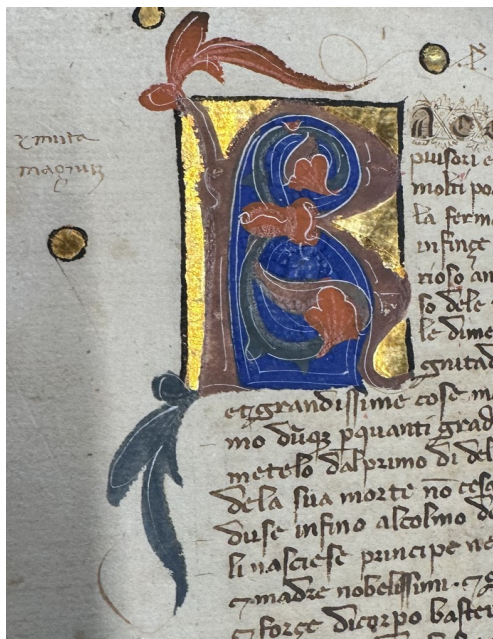 ꝛ muta
magniꝫ
R
Ac
puisori e
molti po
la ferm
rioso an
so dele
le dime
gnitad
et grandissime cose m
mo dũqꝫ pquanti grad
metelo dal primo di del
dela sua morte nõ cesq
duse infino alcolmo d
li nasciese principe ne
madre nobelissimi
forze dicorpo baste